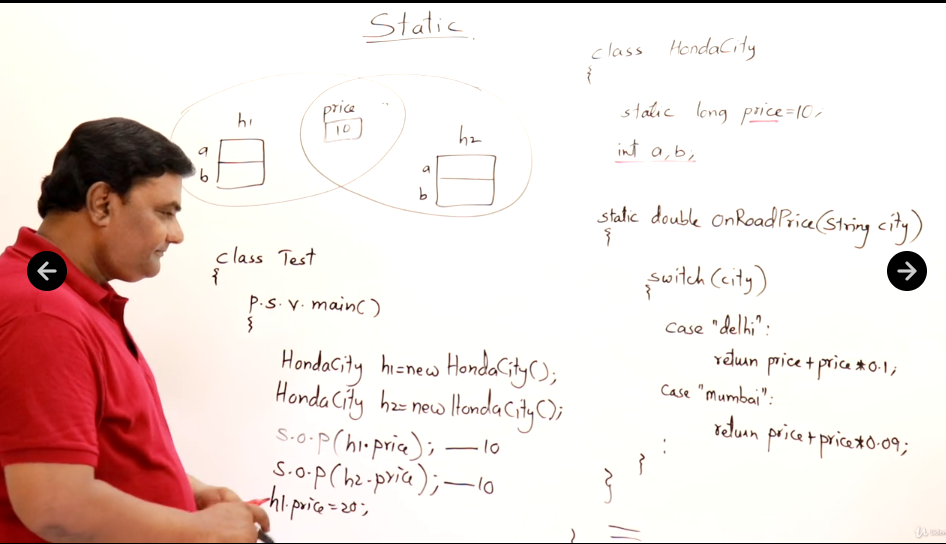 Static
h1
a
b
price
10
h2
a
b
class Test
{
p.s.v.main()
{
HondaCity h1=new HondaCity();
HondaCity h2=new HondaCity();
S.o.p(h1.price); — 10
S.o.p(h2.price); — 10
h1.price=20;
class HondaCity
{
static long price=10;
int a,b;
static double onRoadPrice(String city)
{
switch(city)
{
case "delhi":
return price+price*0.1;
case "mumbai":
return price+price*0.09;
:
}
}